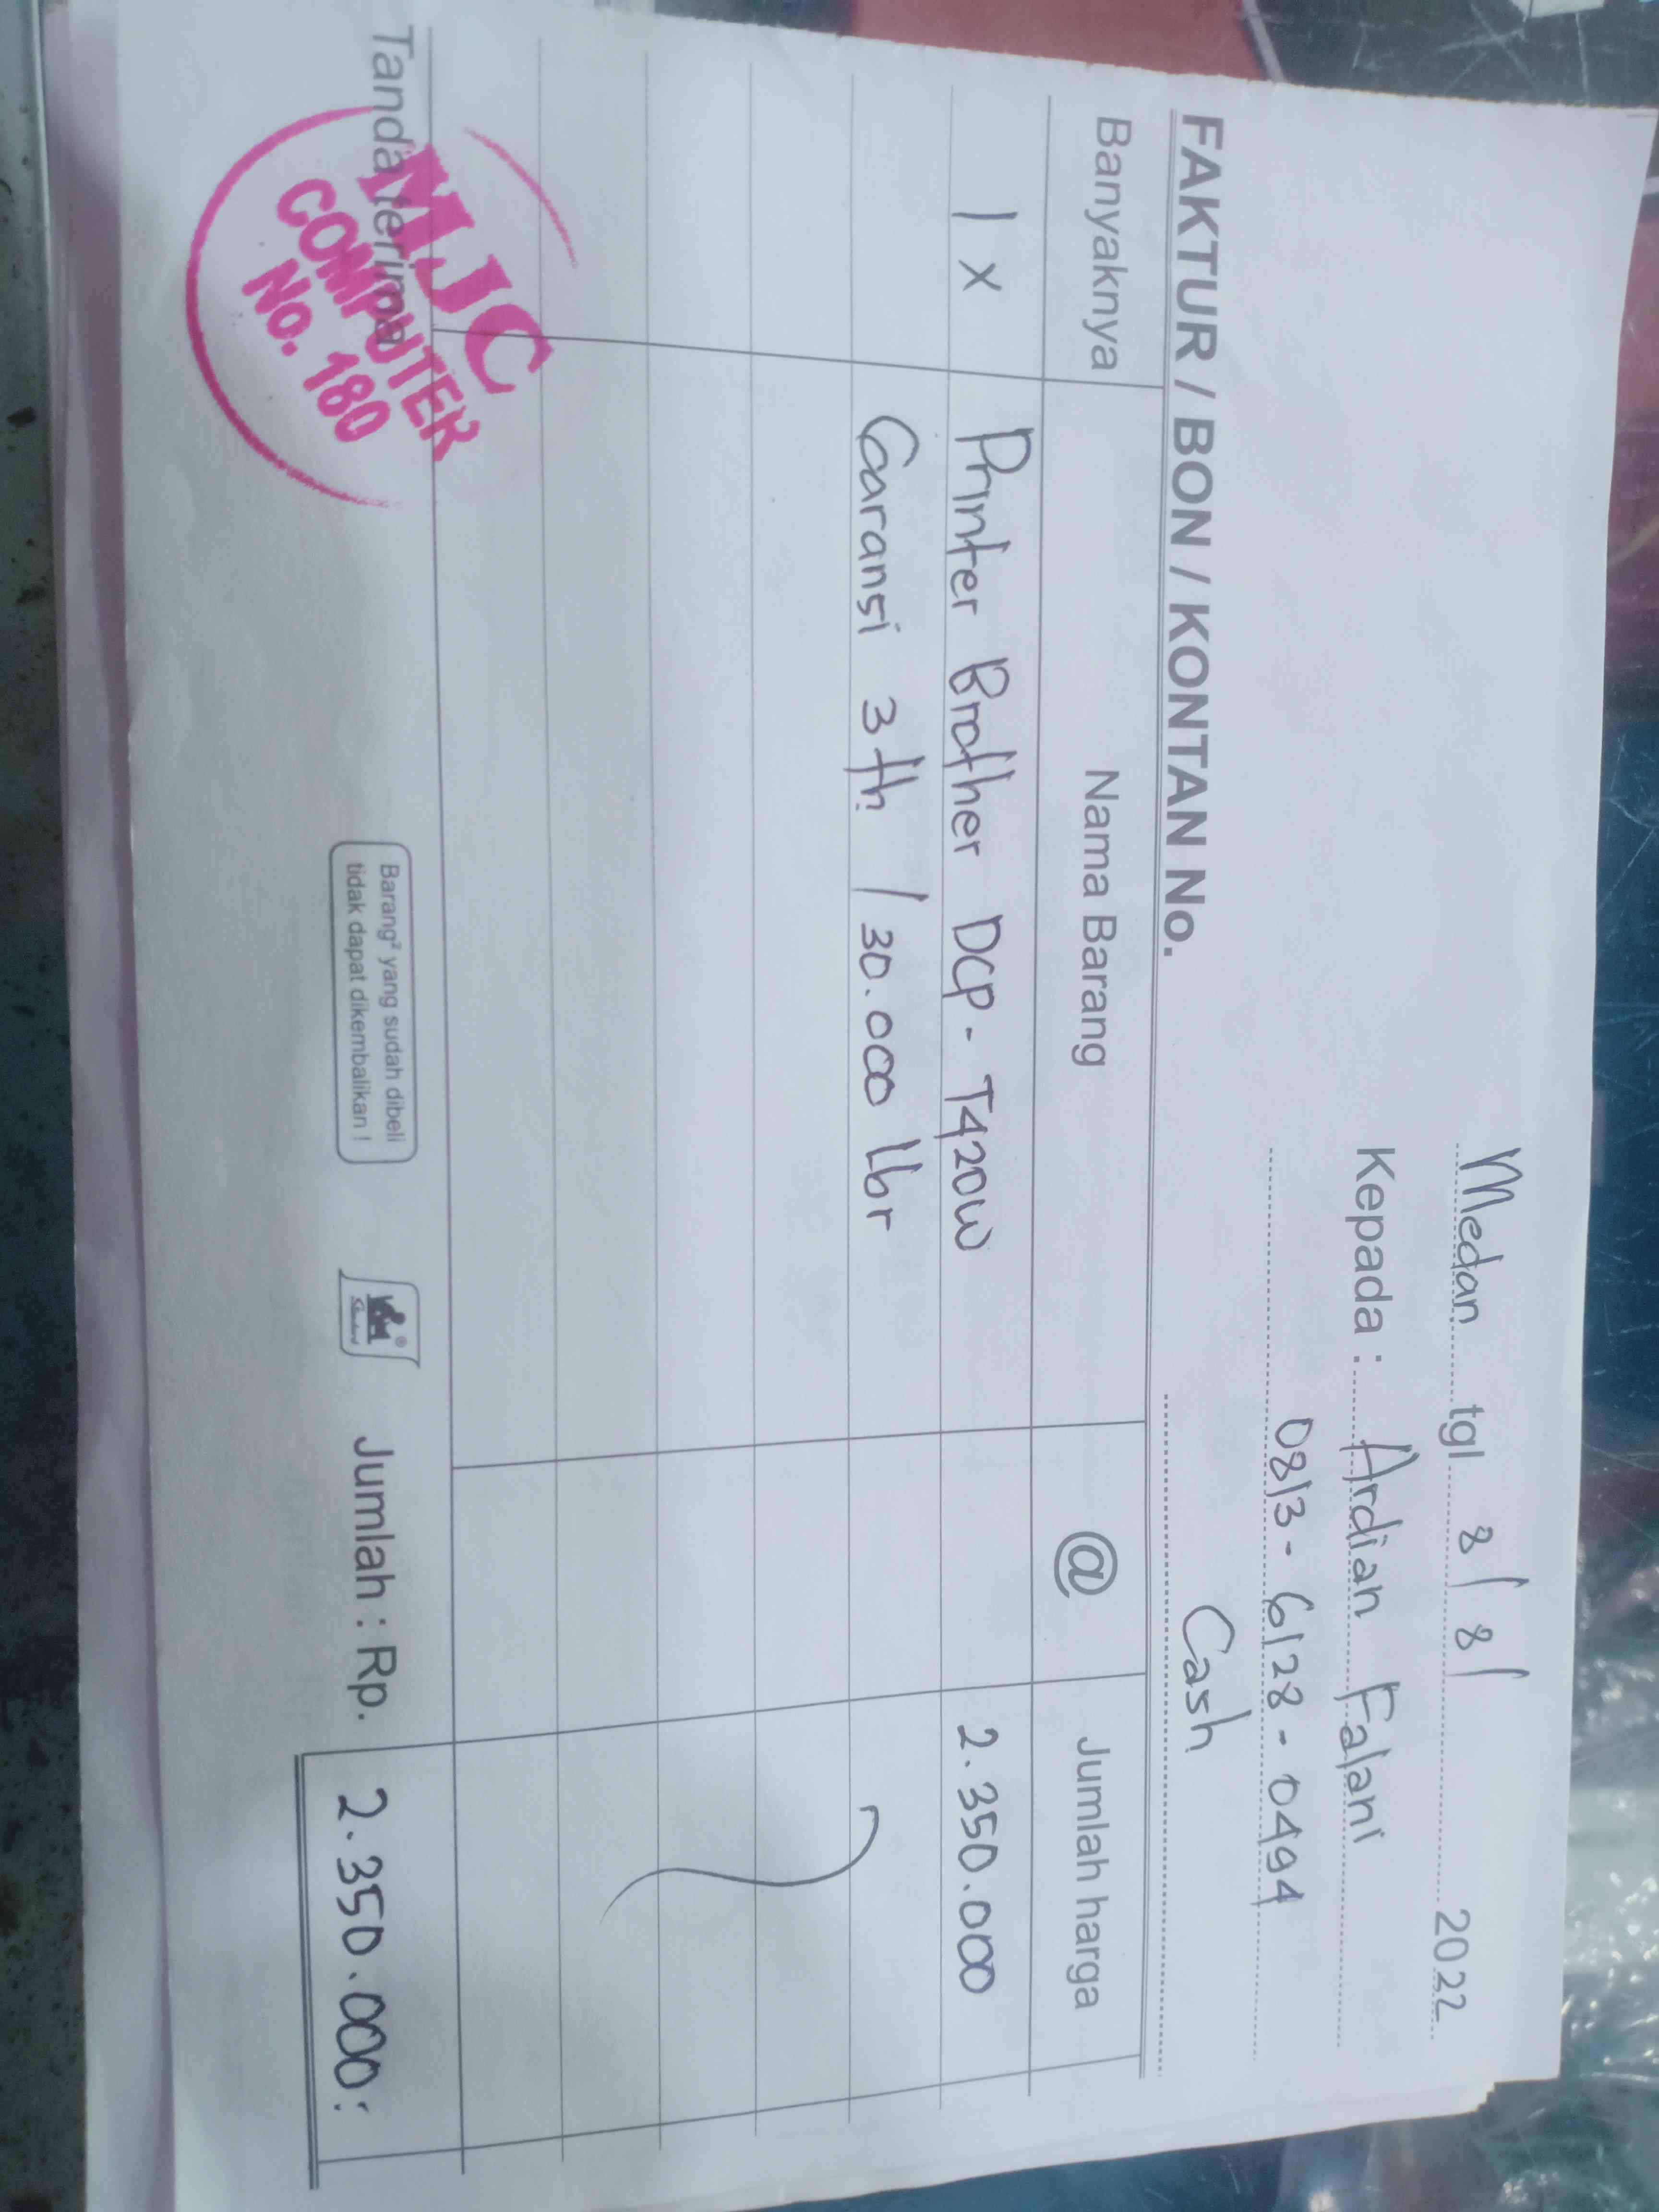 Medan tgl. 8/8/ 2022
Kepada : Ardian Falani
0813-6128-0494
Cash
FAKTUR / BON / KONTAN No.
Banyaknya Nama Barang @ Jumlah harga
1 x Printer Brother DCP-T420W 2.350.000
Garansi 3 th / 30.000 lbr
Tanda terima
MJC
COMPUTER
No. 180
Barang² yang sudah dibeli
tidak dapat dikembalikan !
Jumlah : Rp. 2.350.000: